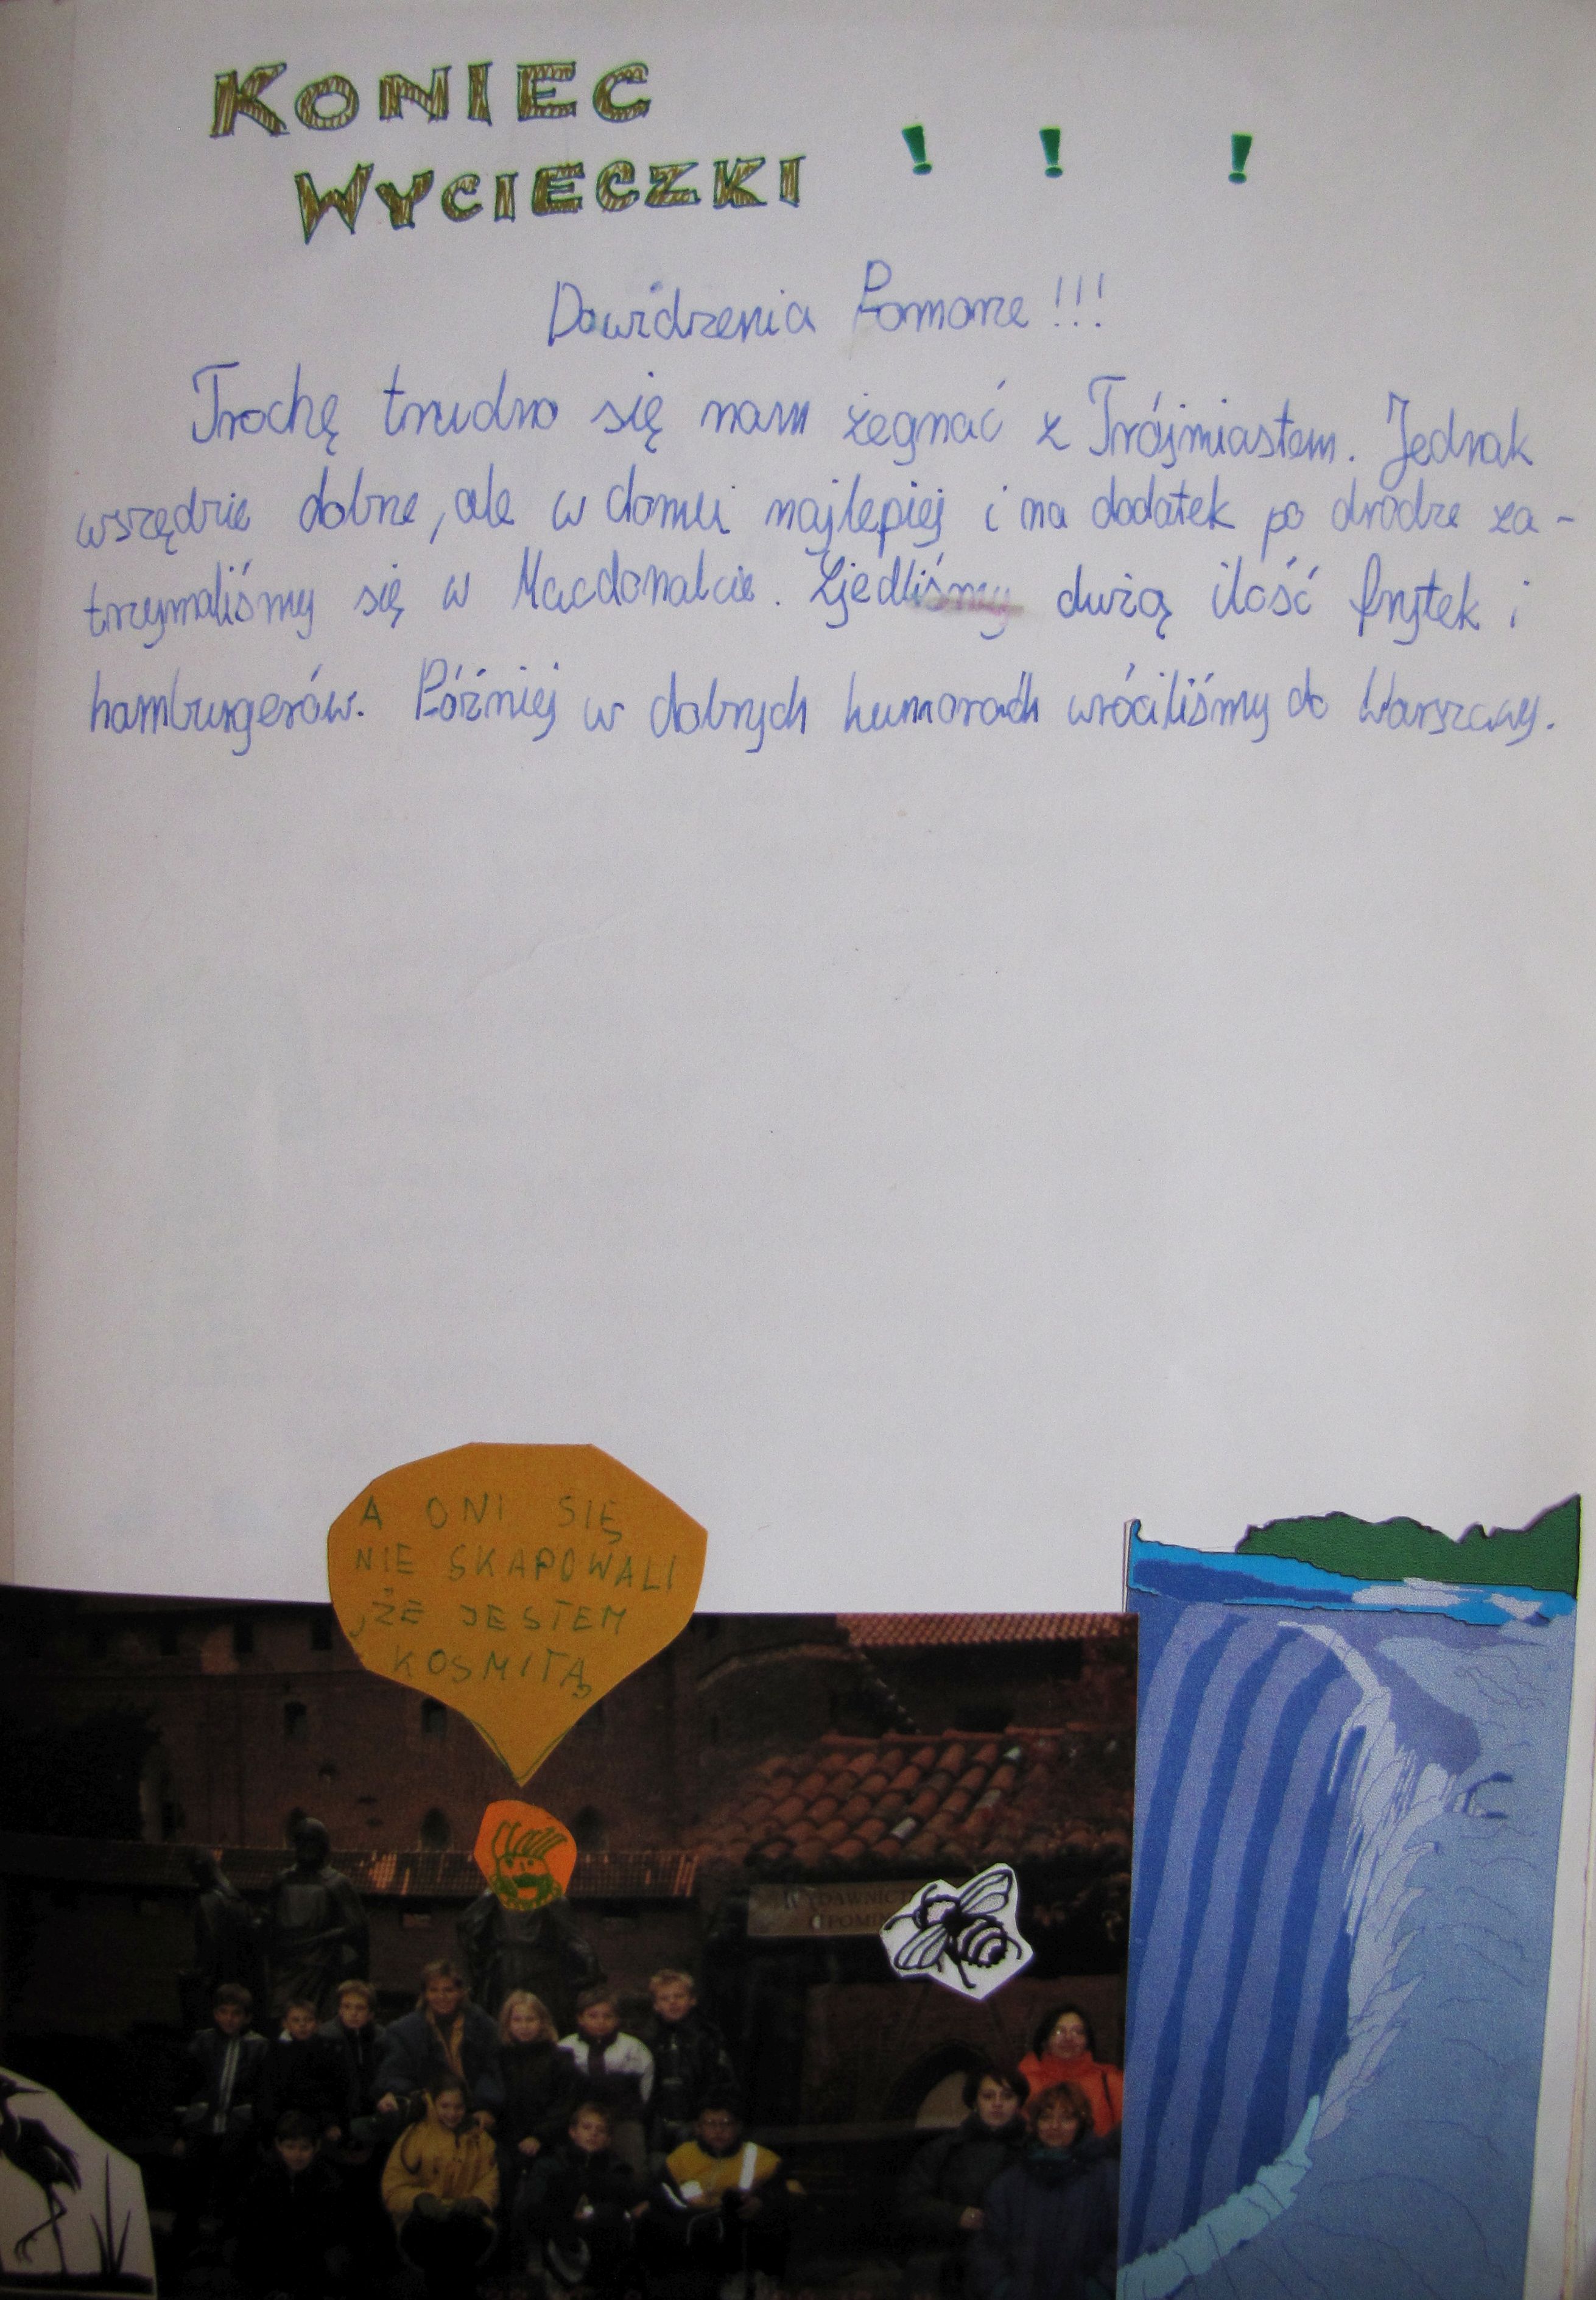 KONIEC
WYCIECZKI ! ! !
Dowidzenia Pomorze!!!
Trochę trudno się nam żegnać z Trójmiastem. Jednak
wszędzie dobrze, ale w domu najlepiej i na dodatek po drodze za-
trzymaliśmy się w Macdonalcie. Zjedliśmy dużą ilość frytek i
hamburgerów. Później w dobrych humorach wróciliśmy do Warszawy.
A ONI SIĘ
NIE SKAPOWALI
,ŻE JESTEM
KOSMITĄ